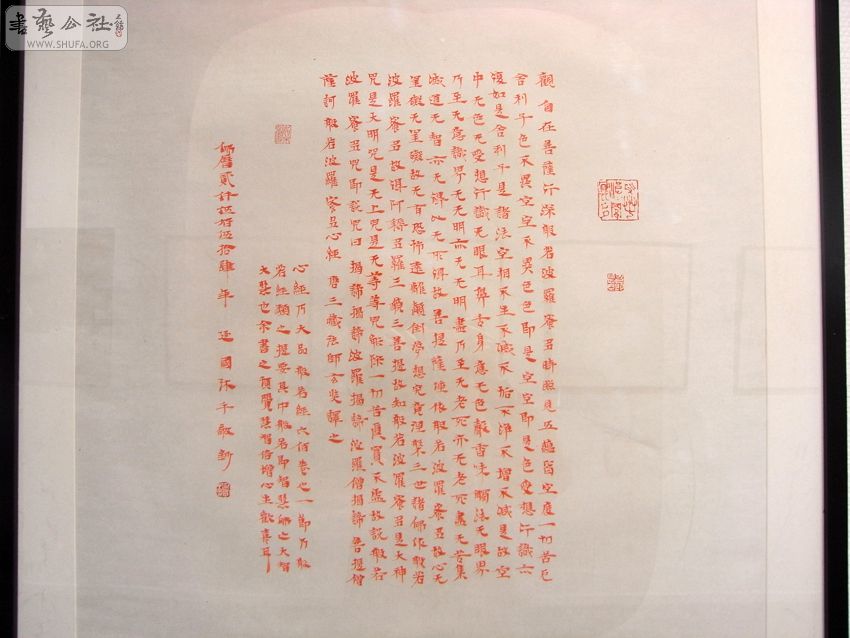 書藝公社
WWW.SHUFA.ORG
觀自在菩薩行深般若波羅蜜多時照見五蘊皆空度一切苦厄
舍利子色不異空空不異色色即是空空即是色受想行識亦
復如是舍利子是諸法空相不生不滅不垢不淨不增不減是故空
中无色无受想行識无眼耳鼻舌身意无色聲香味觸法无眼界
乃至无意識界无无明亦无无明盡乃至无老死亦无老死盡无苦集
滅道无智亦无得以无所得故菩提薩埵依般若波羅蜜多故心无
罣礙无罣礙故无有恐怖遠離顛倒夢想究竟涅槃三世諸佛依般若
波羅蜜多故得阿耨多羅三藐三菩提故知般若波羅蜜多是大神
咒是大明咒是无上咒是无等等咒能除一切苦真實不虛故說般若
波羅蜜多咒即說咒曰揭諦揭諦波羅揭諦波羅僧揭諦菩提僧
薩訶般若波羅蜜多心經 唐三藏法師玄奘譯之
心經乃大品般若經六佰卷之一節乃般
若經類之提要其中般若即智慧佛之大智
大悲也余書之覺慧智倍增心生歡喜耳
佛曆貳仟伍佰伍拾肆年 國陳千敬抄